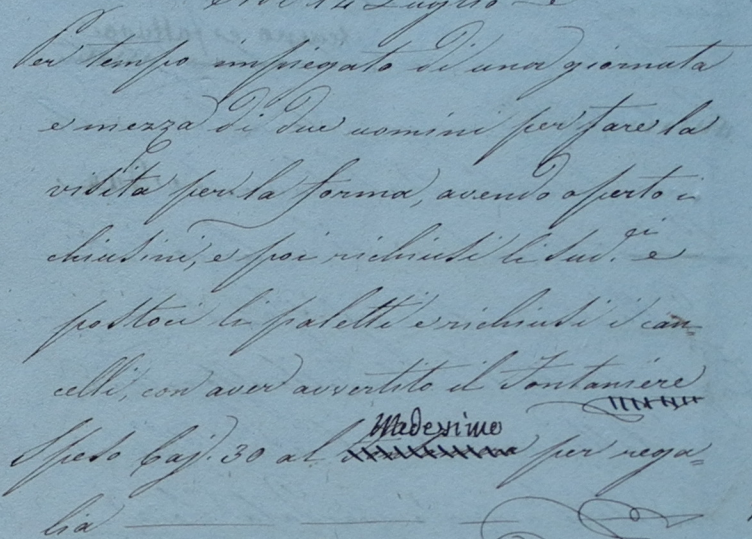 14 Luglio
Per tempo impiegato di una giornata
e mezza di due uomini per fare la
visita per la forma, avendo aperto i
chiusini, e poi richiusi li sud.ti e
postoci li paletti e richiusi i can=
celli, con aver avvertito il Fontaniere
Medesimo
Speso Baj. 30 al per rega=
lia